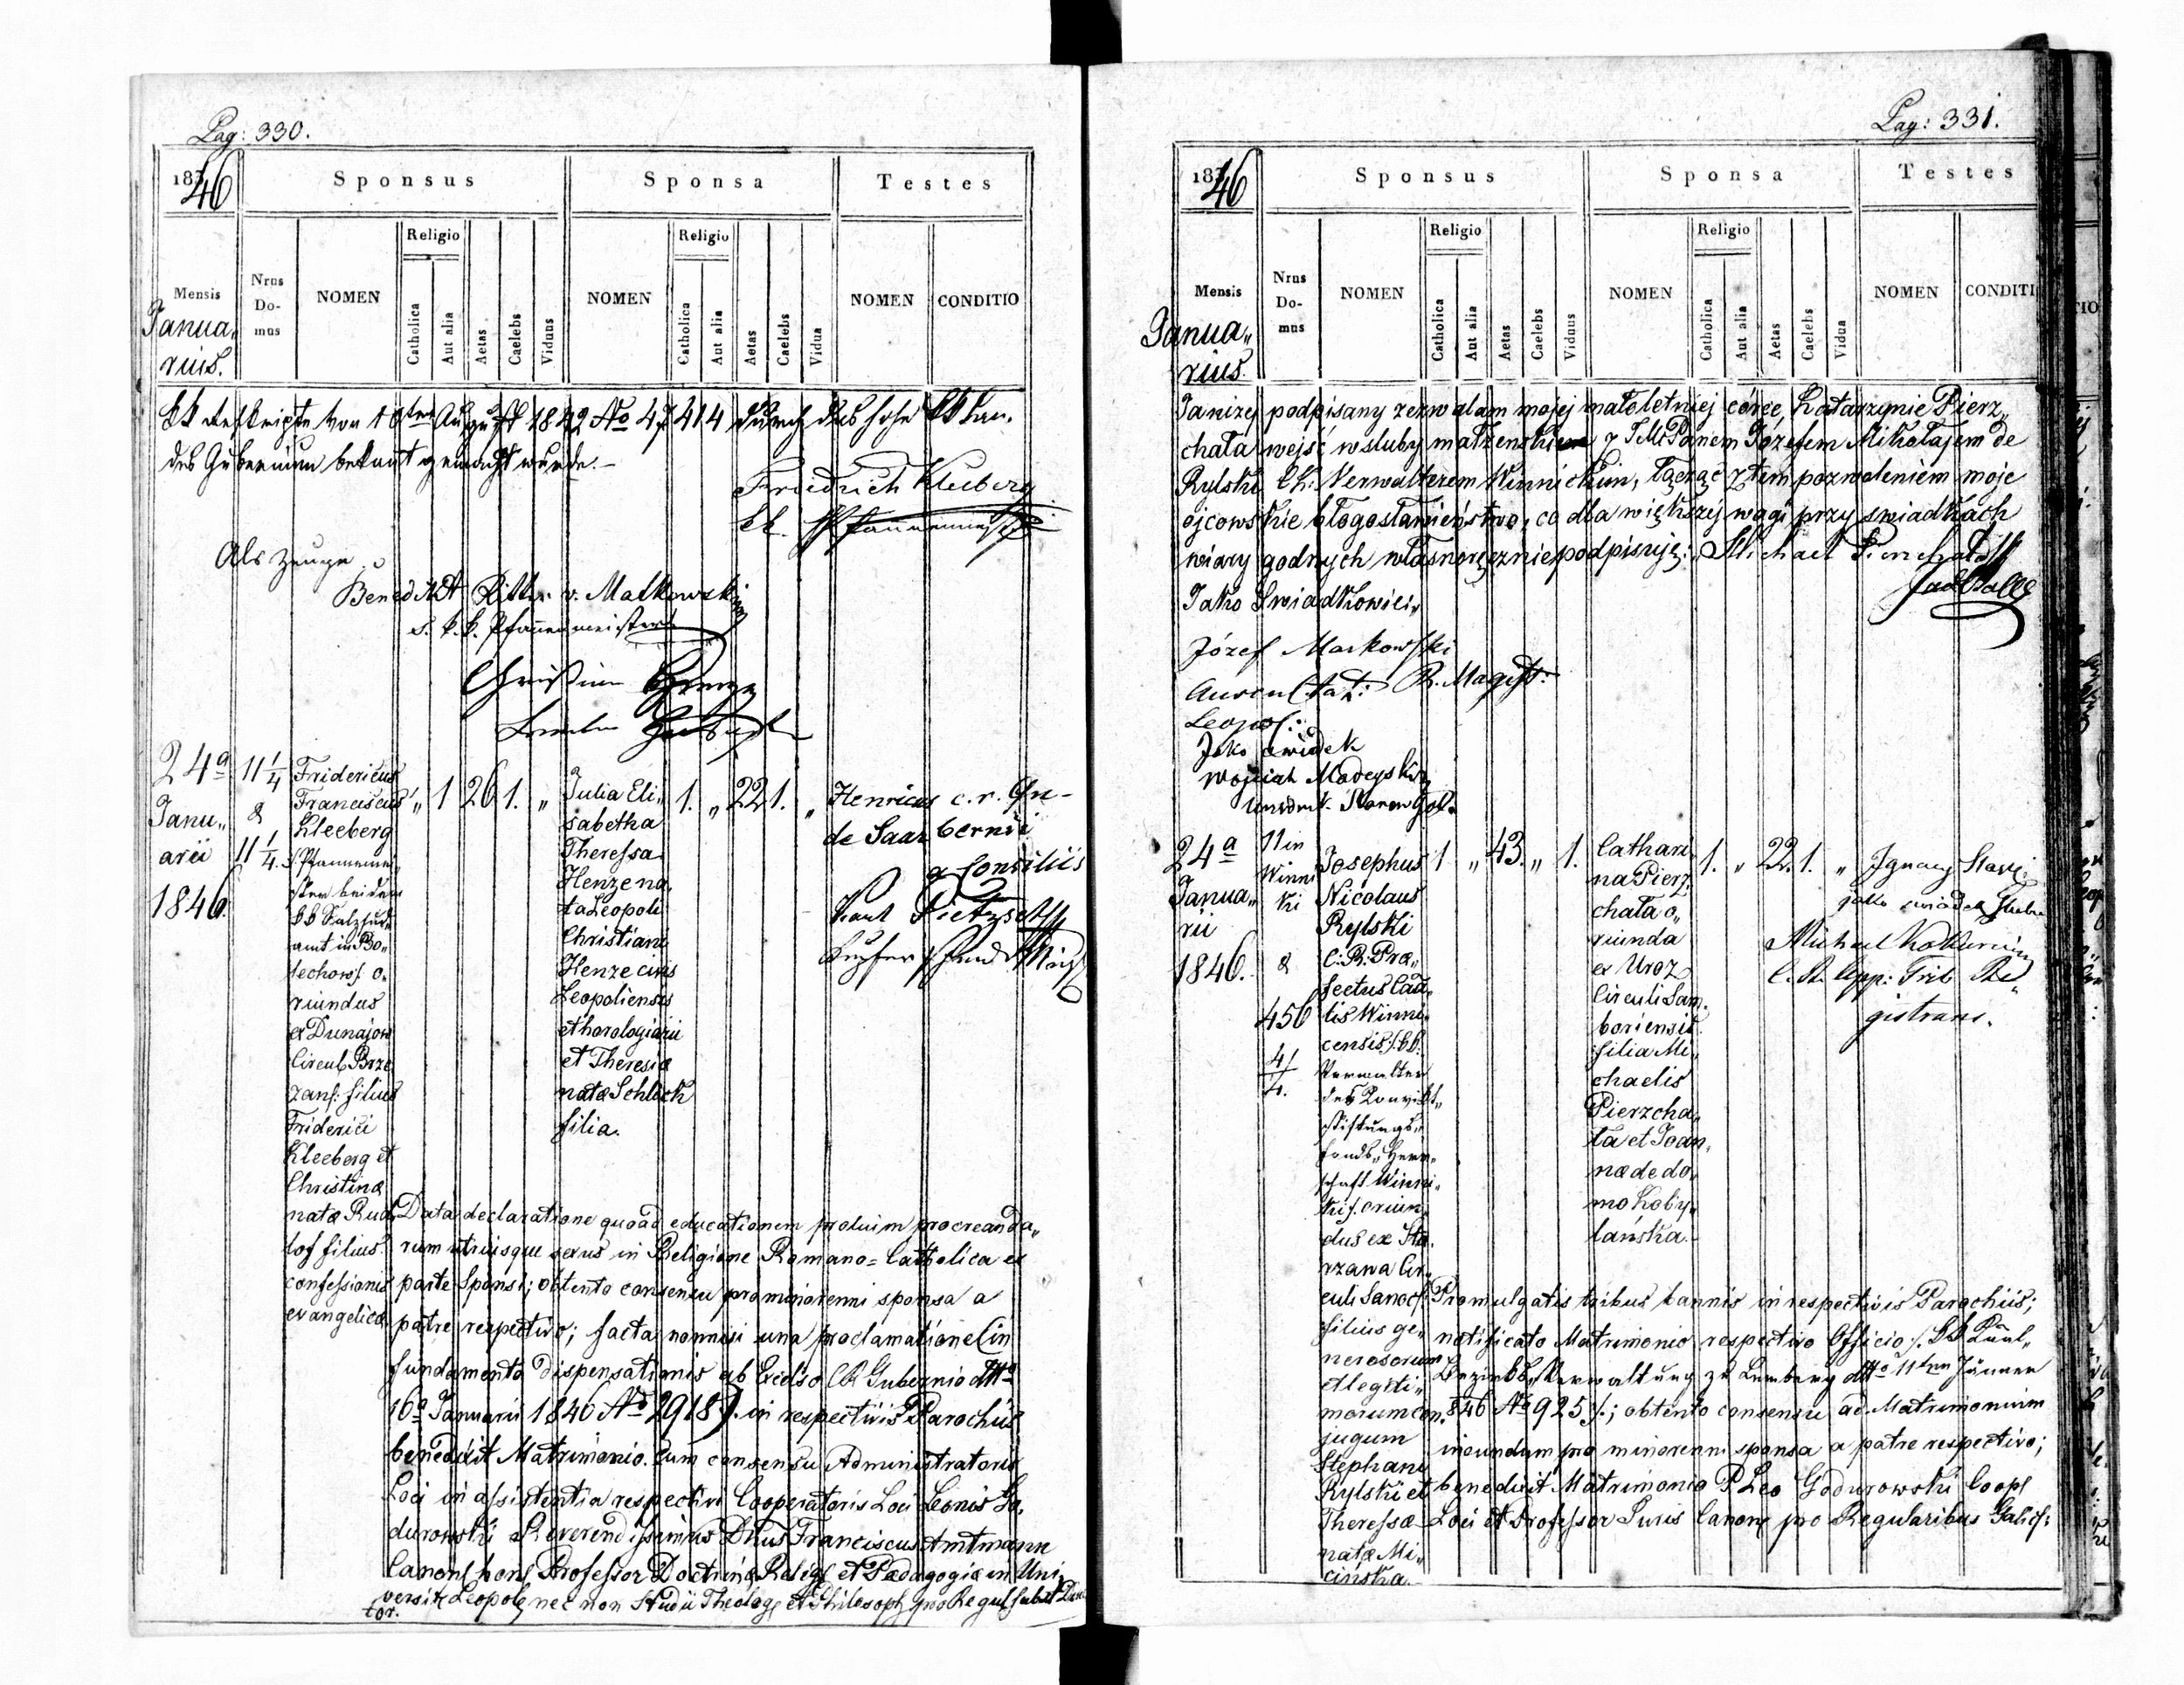 Pag: 330.
1846
Sponsus
Sponsa
Testes
Mensis
Nrus
Do-
mus
NOMEN
Religio
Catholica
Aut alia
Aetas
Caelebs
Viduus
NOMEN
Religio
Catholica
Aut alia
Aetas
Caelebs
Vidua
NOMEN
CONDITIO
Janua„
rius.
August 1842 No 47414 durch das hohe
des Gubernium bekant gemacht wurde.–
Friedrich Kleeberg
kk. Pfannenmeister
Als Zeuge
Benedikt Ritter v. Malkowski
k.k. Pfannenmeister
Christian Henze
24a
Janu„
arii
1846.
11 1/4
&
11 1/4.
Fridericus
Franciscus
Kleeberg
/: Pfannenmei„
ster bei dem
kk Salzsud„
amt in Bo„
lechow :/ o„
riundus
ex Dunajow
Circul Brze
zan: filius
Friderici
Kleeberg et
Christinæ
natæ Rud„
lof filius
confessionis
evangelicæ
„ 1 26 1. „
Julia Eli„
sabetha
Theressa
Henze na„
ta Leopoli
Christiani
Henze civis
Leopoliensis
et horologiarii
et Theresiæ
natæ Schlock
filia.
1. „ 22 1. „
Henricus c. r. Gu-
de Saar bernii
a Consiliis
Karl Pietzsch
Data declaratione quoad educationem prolium procreanda„
rum utriusque sexus in Religione Romano=Catholica ex
parte Sponsi; obtento consensu pro minorenni sponsa a
patre respectivo; facta nonnisi una proclamatione (in
fundamento dispensationis ab Excelso CR Gubernio ddto
16a Januarii 1846 No 2918). in respectivis Parochiis
benedixit Matrimonio. cum consensu Administratoris
Loci in assistentia respectivi Cooperatoris Loci Leonis Go„
durowski Reverendissimus Dnus Franciscus Amtmann
Canon: hon: Professor Doctrinæ Relig: et Pædagogiæ in Uni„
versit: Leopol: nec non Studii Theolog: et Philosoph: pro Regul:
tor.
Pag: 331.
1846
Sponsus
Sponsa
Testes
Mensis
Nrus
Do-
mus
NOMEN
Religio
Catholica
Aut alia
Aetas
Caelebs
Viduus
NOMEN
Religio
Catholica
Aut alia
Aetas
Caelebs
Vidua
NOMEN
CONDITI
Janua„
rius
Ja niżej podpisany zezwalam mojej małoletniej córce, Katarzynie Pierz„
chała wejść w śluby małżeńskie z JMPanem Józefem Mikołajem de
Rylski CK: Verwalterem Winnickim, łącząc z tem pozwoleniem moje
ojcowskie błogosławieństwo, co dla większej wagi przy swiadkach
wiary godnych własnoręcznie podpisuję: Michael Pierzchała
Jako Swiadkowie:
Józef Markowski
Auscultat: R. Magist:
Leopol:
Jako swiadek
Wojciech Madeyski
24a
Janua„
rii
1846.
11 in
Winni„
ki
&
456
4/4.
Josephus
Nicolaus
Rylski
C: R: Præ„
fectus Cau„
tis Winni„
censis /: kk:
Verwalter
der Konvikt„
stiftungs„
fonds„Herr„
schaft Winni„
ki :/ oriun„
dus ex Sta„
rzawa Cir„
culi Sanoc:
filius ge„
nerosorum
et legiti„
morum con„
jugum
Stephani
Rylski et
Theressæ
natæ Mi„
cińska.–
1 „ 43. „ 1.
Cathari„
na Pierz„
chała o„
riunda
ex Uroz
Circuli Sam„
boriensis.
filia Mi„
chaelis
Pierzcha„
ła et Joan„
næ de do„
mo Koby„
lańska.–
1. „ 22. 1. „
Ignacy
jako swiadek
Michael
C. R. App: Trib Re„
gistrans.
Promulgatis tribus bannis in respectivis Parochiis;
notificato Matrimonio respectivo Officio /: kk
Bezirks„Verwaltung zu Lemberg ddto 11ten Jänner
846 No 925 :/; obtento consensu ad Matrimonium
ineundum pro minorenni sponsa a patre respectivo;
benedixit Matrimonio P Leo Godurowski Coop:
Loci et Professor Juris Canon: pro Regularibus Galic: